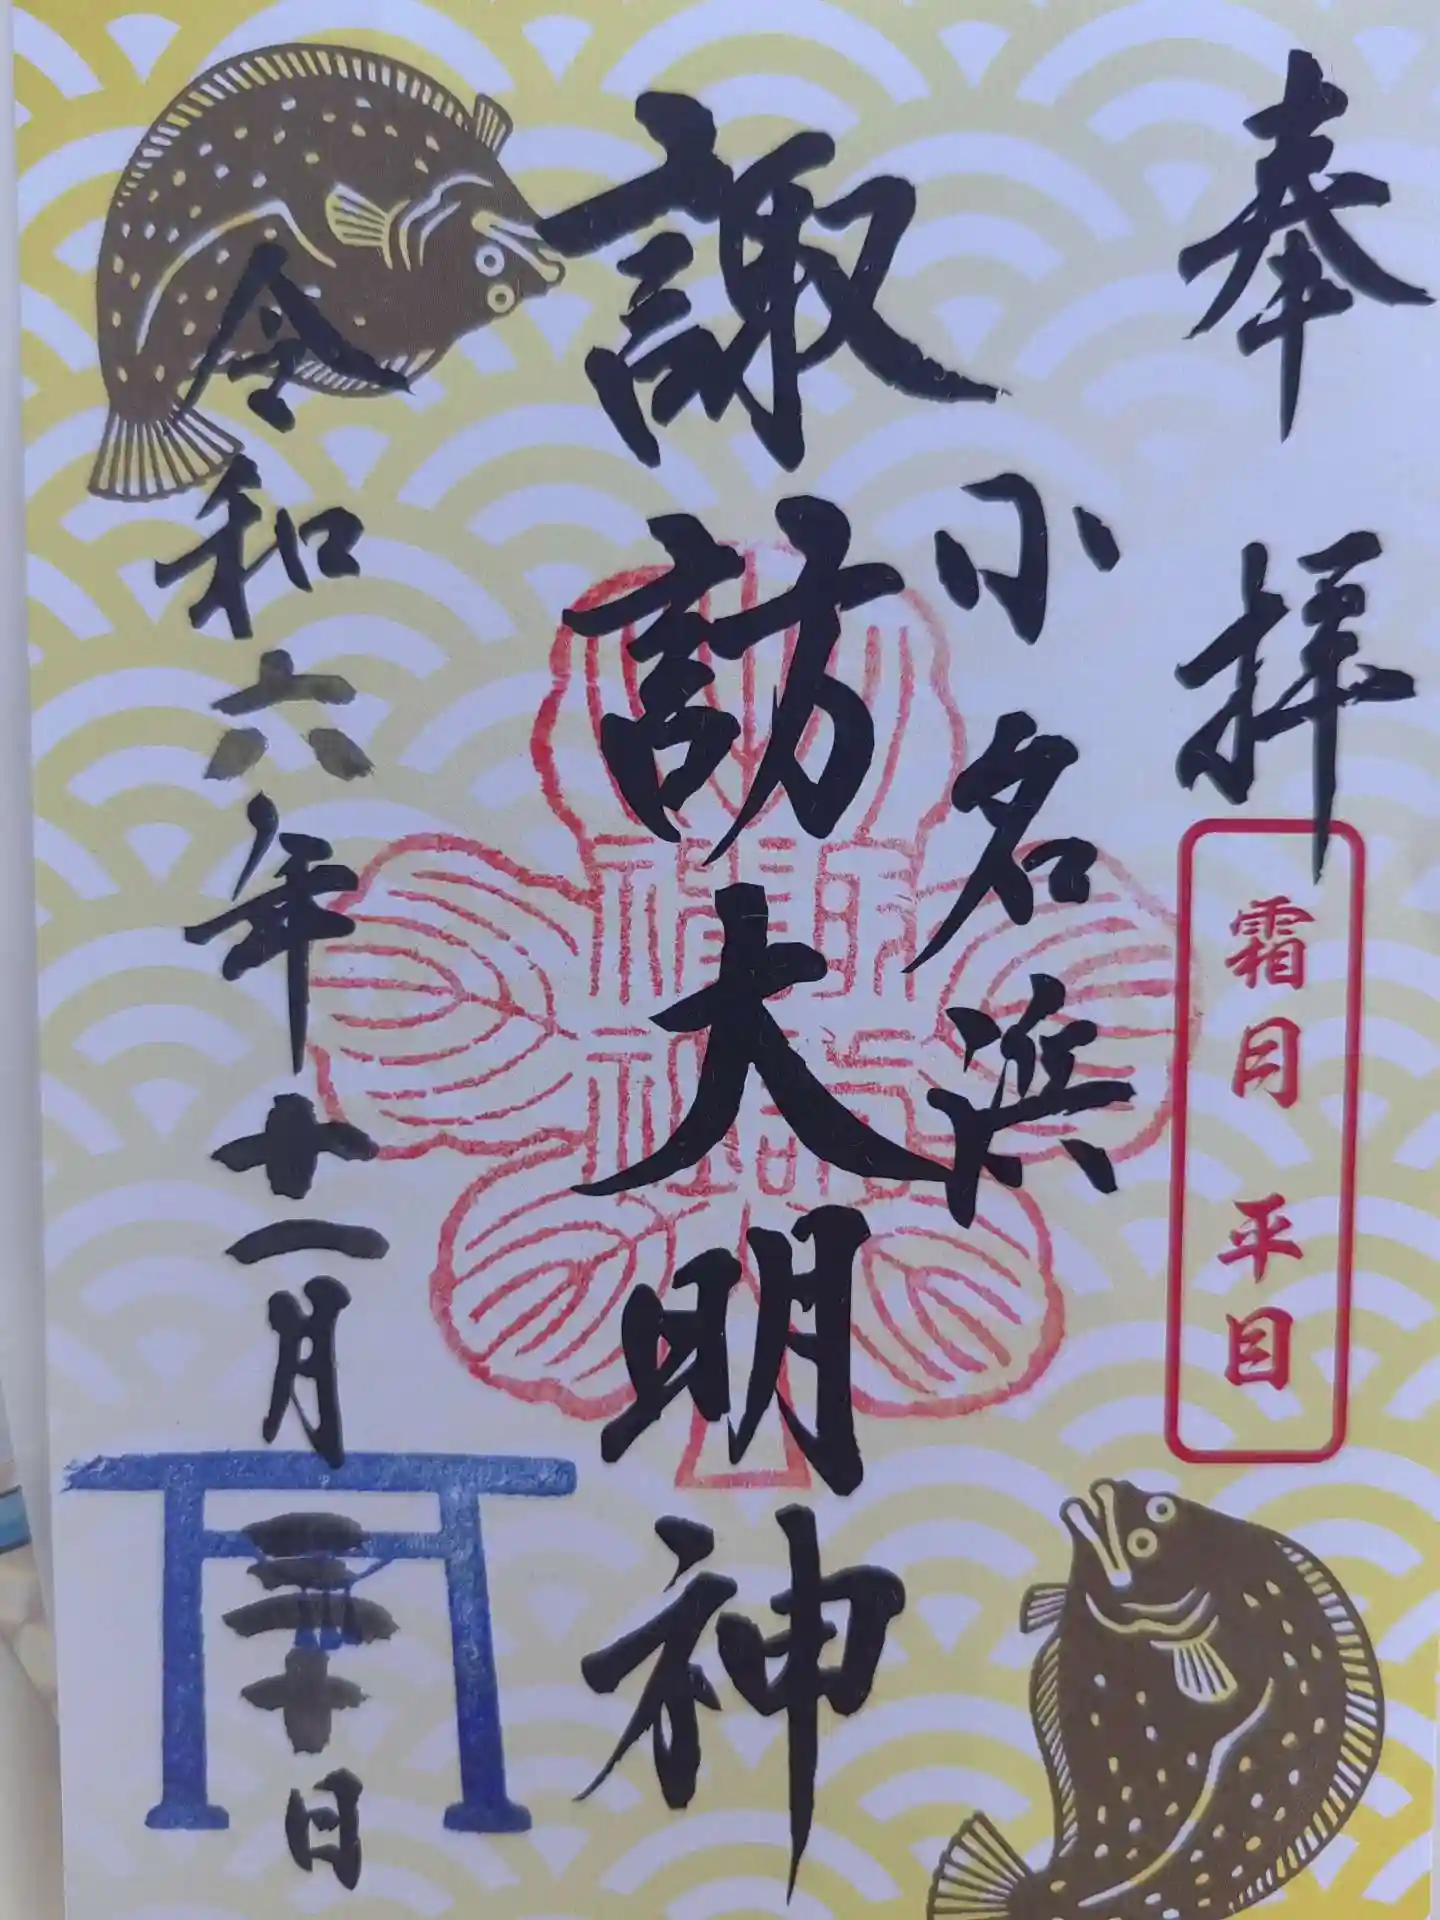 奉拝
霜月 平目
小名浜
諏訪大明神
諏訪神社
令和六年十一月三十日